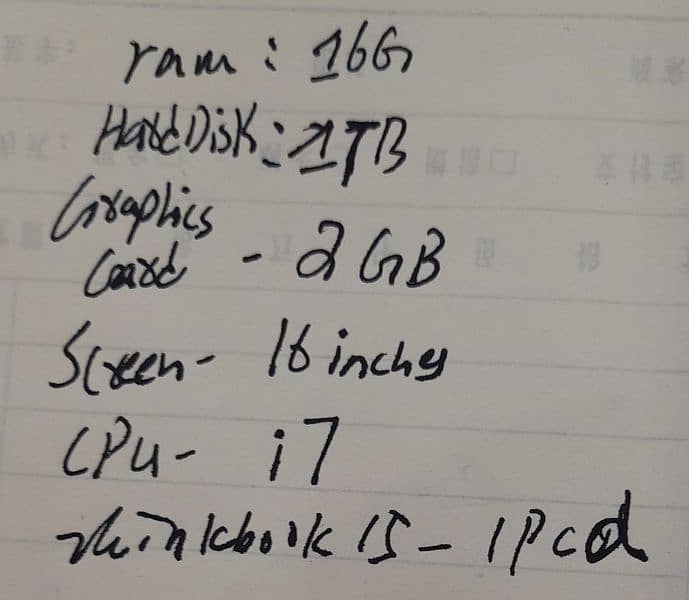 ram: 16G
HardDisk: 1TB
Graphics
Card - 2GB
Screen- 16 inches
CPu- i7
thinkbook 15 -